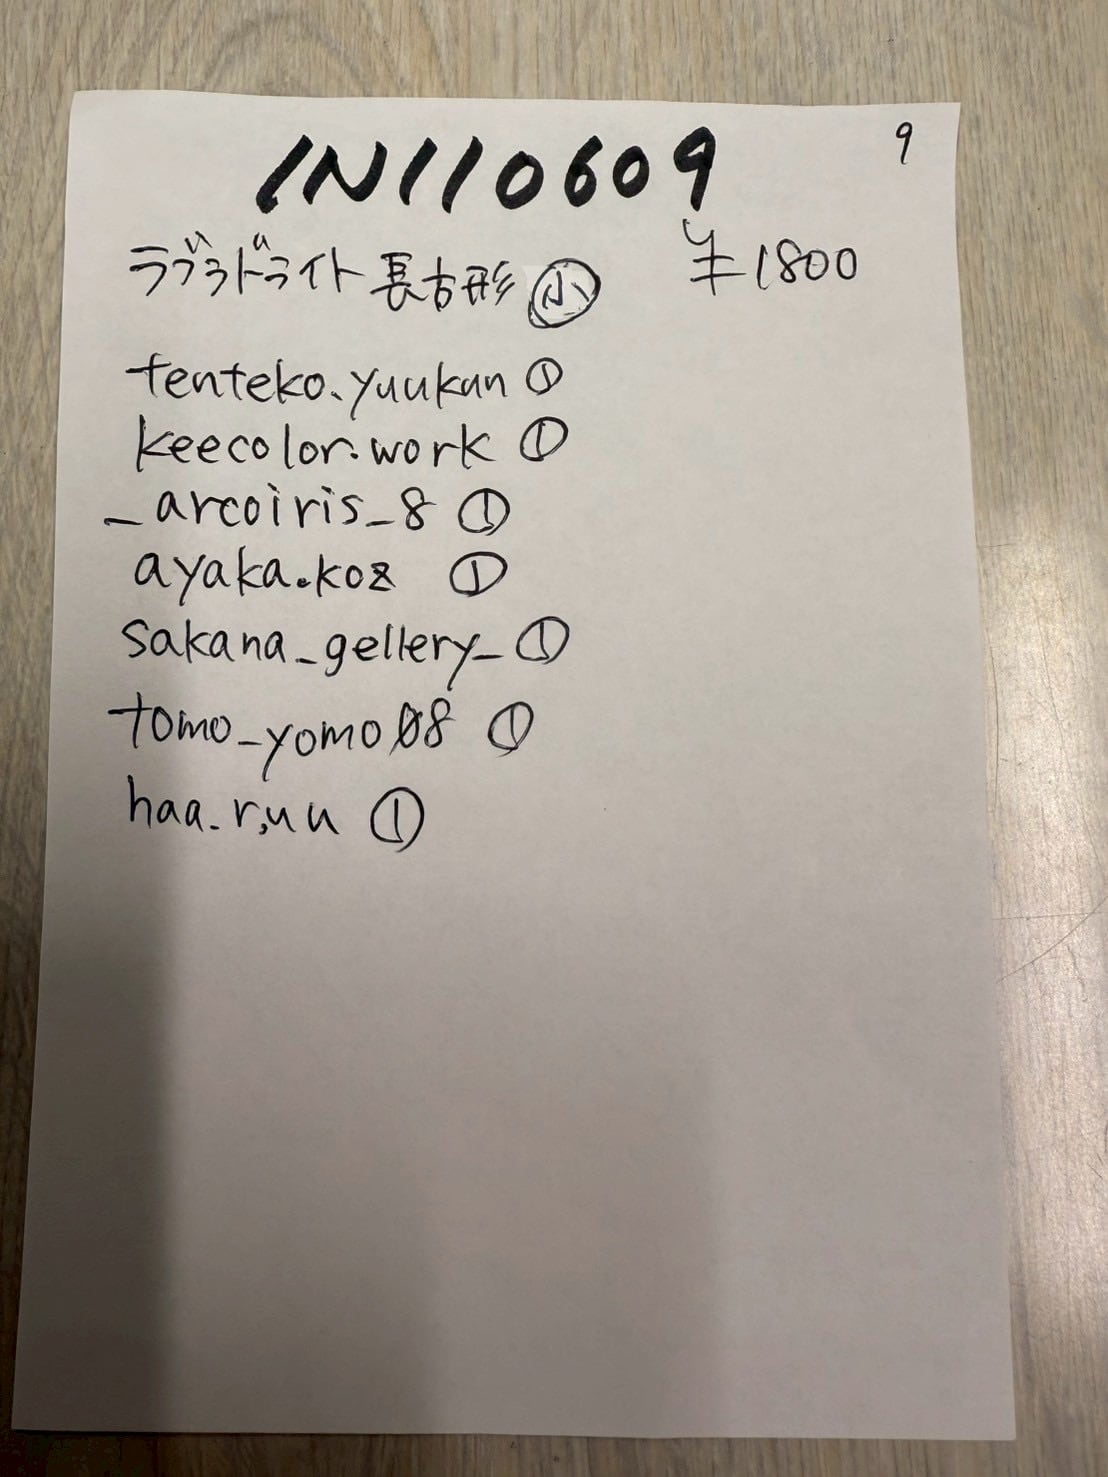 9
IN110609
ラブラドライト 長方形 ㊤小 ¥1800
tenteko.yuukan ①
keecolor.work ①
_arcoiris_8 ①
ayaka.koz ①
sakana_gellery_ ①
tomo_yomo08 ①
haa.r,uu ①